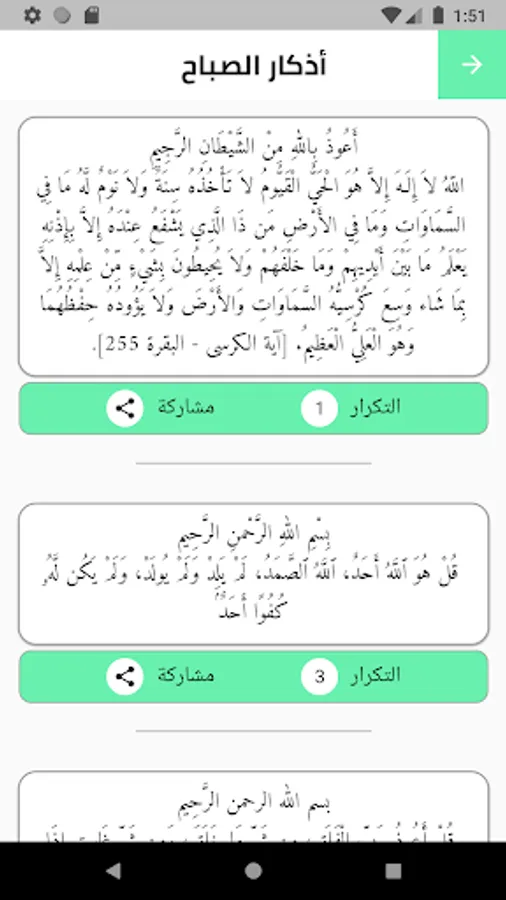 1:51
أذكار الصباح
أَعُوذُ بِاللهِ مِنْ الشَّيْطَانِ الرَّجِيمِ
اللّهُ لاَ إِلَـهَ إِلاَّ هُوَ الْحَيُّ الْقَيُّومُ لاَ تَأْخُذُهُ سِنَةٌ وَلاَ نَوْمٌ لَّهُ مَا فِي
السَّمَاوَاتِ وَمَا فِي الأَرْضِ مَن ذَا الَّذِي يَشْفَعُ عِنْدَهُ إِلاَّ بِإِذْنِهِ
يَعْلَمُ مَا بَيْنَ أَيْدِيهِمْ وَمَا خَلْفَهُمْ وَلاَ يُحِيطُونَ بِشَيْءٍ مِّنْ عِلْمِهِ إِلاَّ
بِمَا شَاء وَسِعَ كُرْسِيُّهُ السَّمَاوَاتِ وَالأَرْضَ وَلاَ يَؤُودُهُ حِفْظُهُمَا
وَهُوَ الْعَلِيُّ الْعَظِيمُ. [آية الكرسى - البقرة 255].
التكرار 1 مشاركة
بِسْمِ اللهِ الرَّحْمنِ الرَّحِيم
قُلْ هُوَ ٱللَّهُ أَحَدٌ، ٱللَّهُ ٱلصَّمَدُ، لَمْ يَلِدْ وَلَمْ يُولَدْ، وَلَمْ يَكُن لَّهُۥ
كُفُوًا أَحَدٌۢ
التكرار 3 مشاركة
بسم الله الرحمن الرَّحِيم